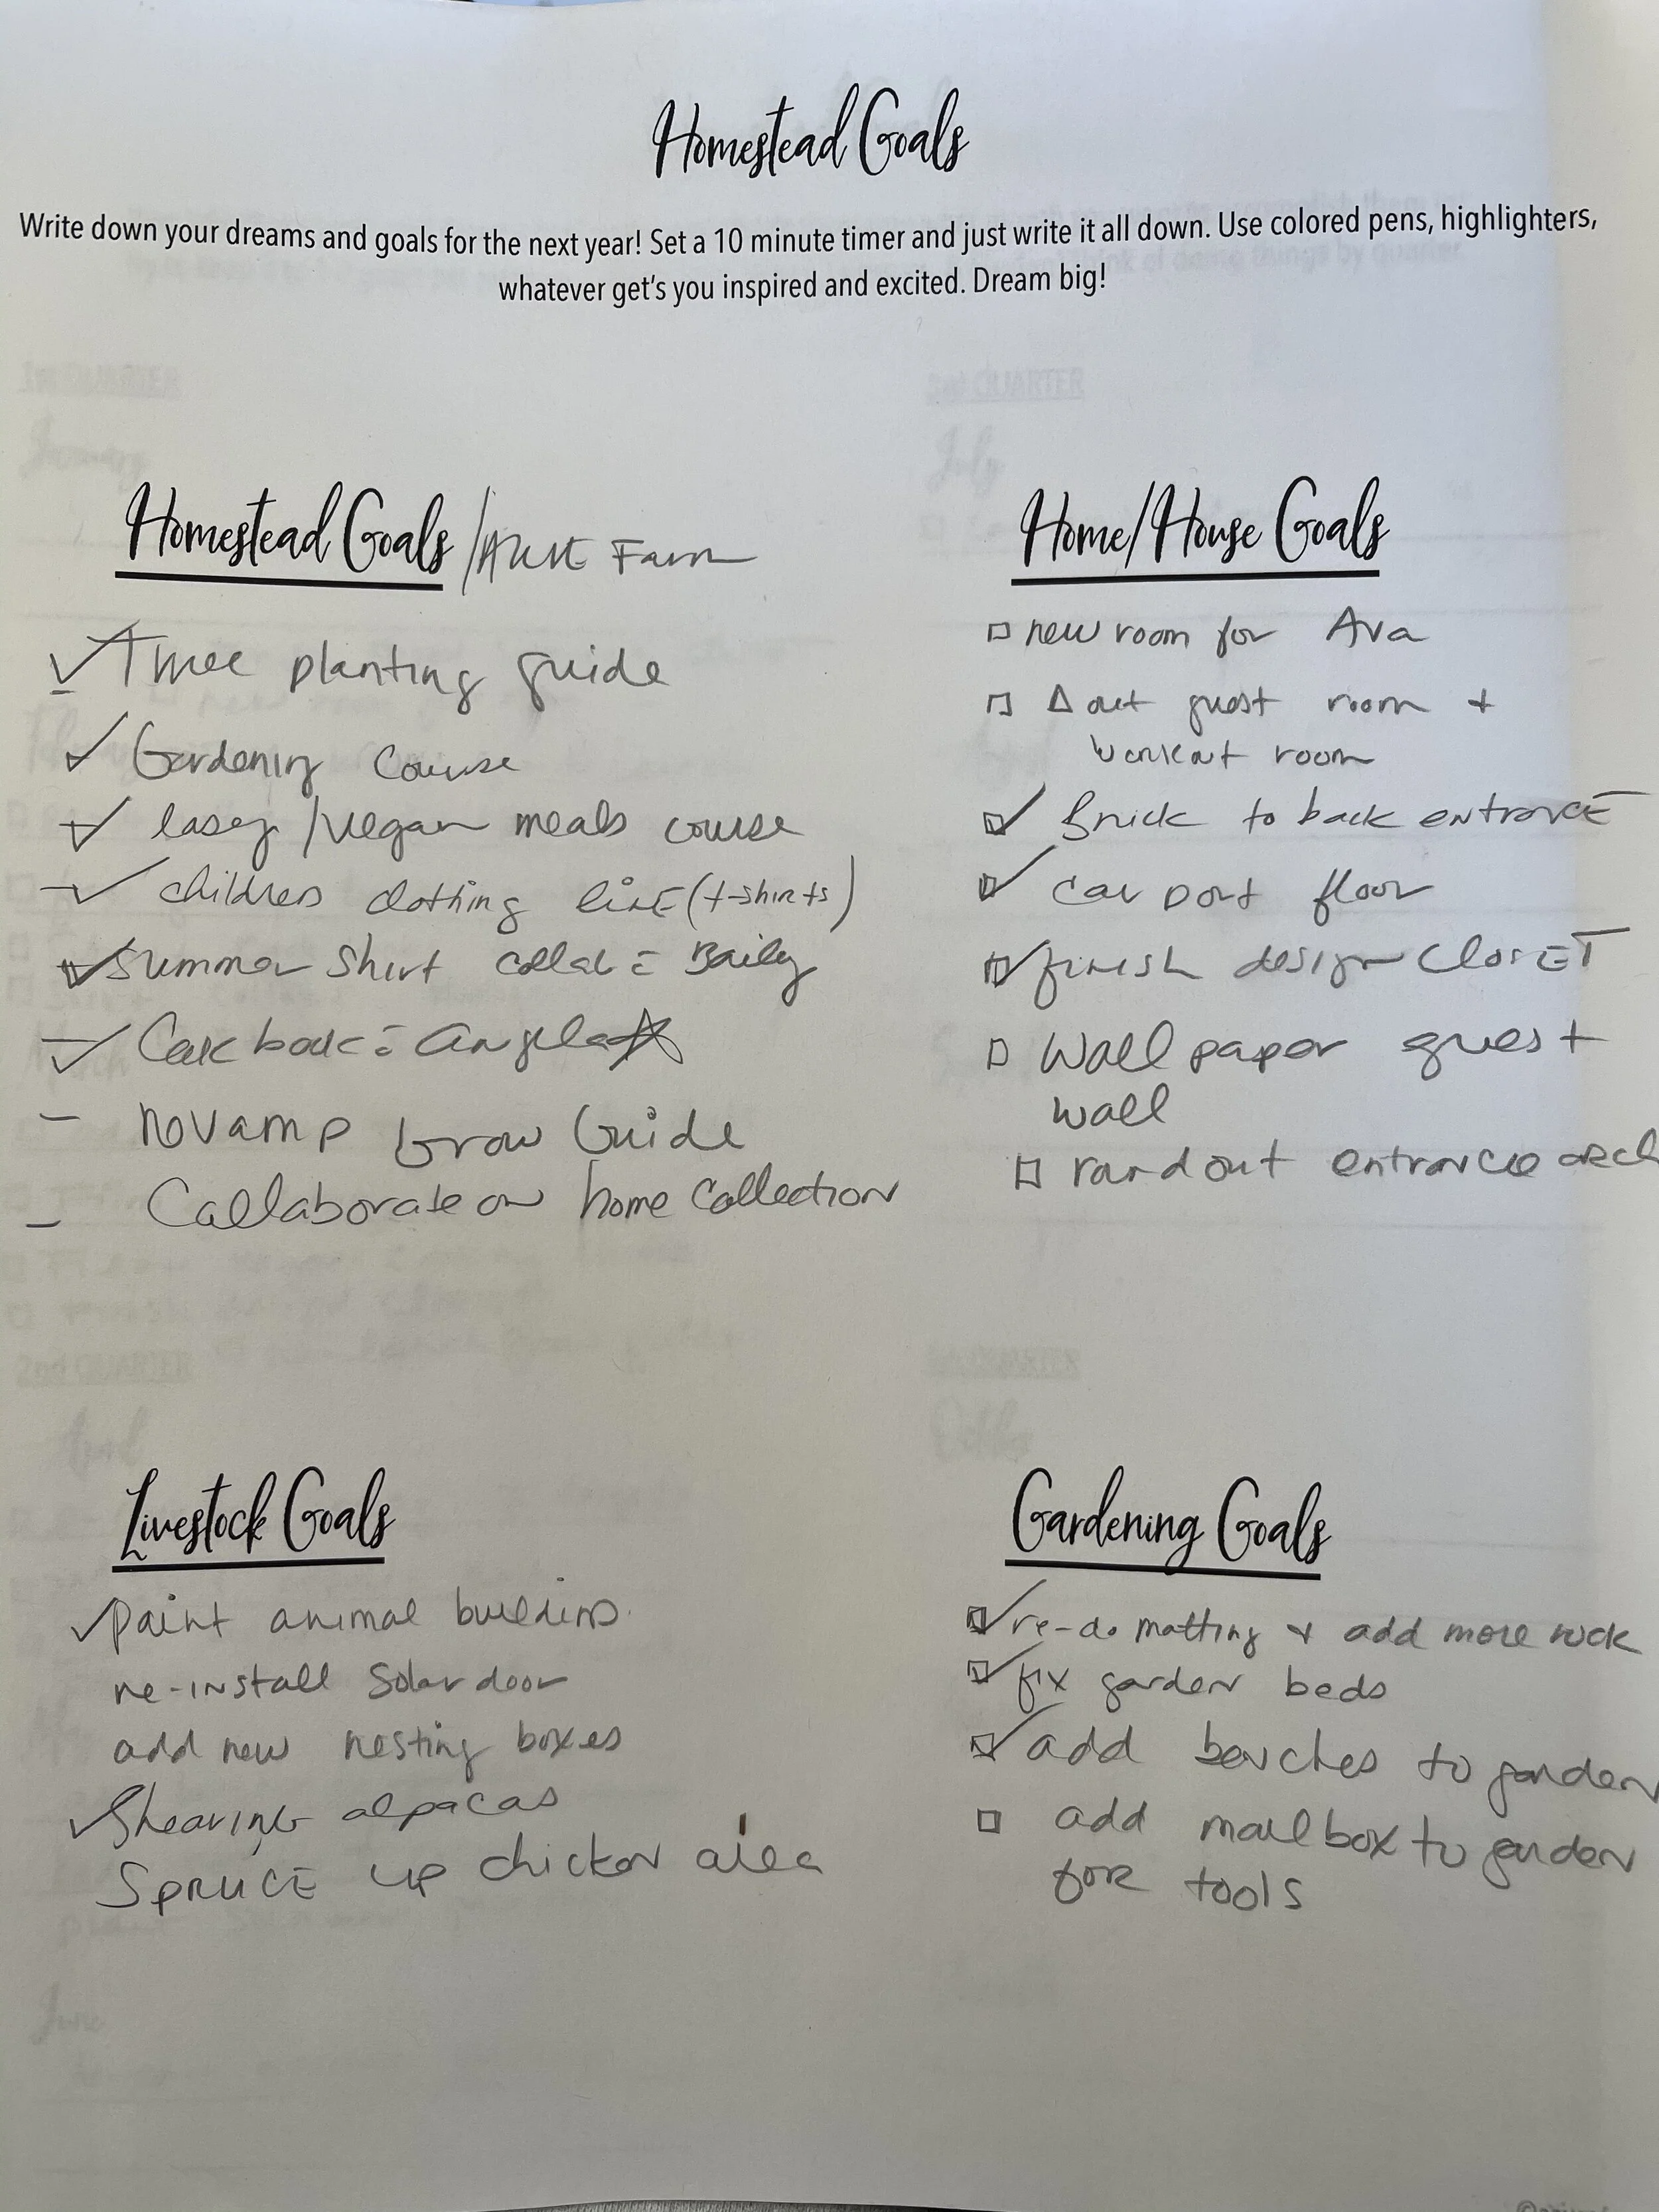 Homestead Goals
Write down your dreams and goals for the next year! Set a 10 minute timer and just write it all down. Use colored pens, highlighters,
whatever get's you inspired and excited. Dream big!
Homestead Goals / Farm
planting guide
Gardening Course
/vegan meals course
children clothing line (t-shirts)
Summer Shirt collab Baily
Angela
revamp Grow Guide
Collaborate on home Collection
Home/House Goals
new room for Ava
Δ out guest room +
workout room
Brick to back entrance
car port floor
finish design closet
Wall paper guest
wall
out entrance
Livestock Goals
paint animal buildings
re-install Solar door
add new nesting boxes
Shearing alpacas
Spruce up chicken area
Gardening Goals
re-do matting + add more rock
fix garden beds
add benches to garden
add mailbox to garden
for tools
1st QUARTER
January
July
2nd QUARTER
April
June